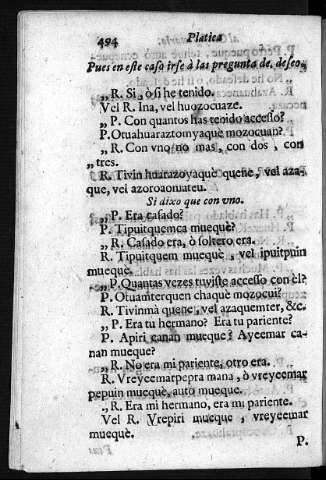 494 Platica
Pues en este caso irse à las pregunta de, deseo.
„R. Si, ò si he tenido.
Vel R. Ina, vel huozocuaze.
„P. Con quantos has tenido accesso?
P. Otuahuaraztomyaquè mozocuan?
„R. Con vno no mas, con dos, con
„tres.
R. Tivin huarazoyaquè queñe, vel aza-
que, vel azoroaonuateu.
Si dixo que con vno.
„P. Era casado?
P. Tipuitquemca muequè?
„R. Casado era, ò soltero era.
R. Tipuitquem muequè, vel ipuitpuin
muequè.
„P. Quantas vezes tuviste accesso con èl?
P. Otuamterquen chaquè mozocui?
R. Tivinmà queñe, vel azaquemter, &c.
„P. Era tu hermano? Era tu pariente?
P. Apiri canan mueque? Ayeemar ca-
nan mueque?
„R. No era mi pariente, otro era.
R. Vreyeemarpepra mana, ò vreyeemar
pepuin muequè, auto mueque.
„R. Era mi hermano, era mi pariente.
Vel R. Vrepiri mueque, vreyeemar
muequè.
P.